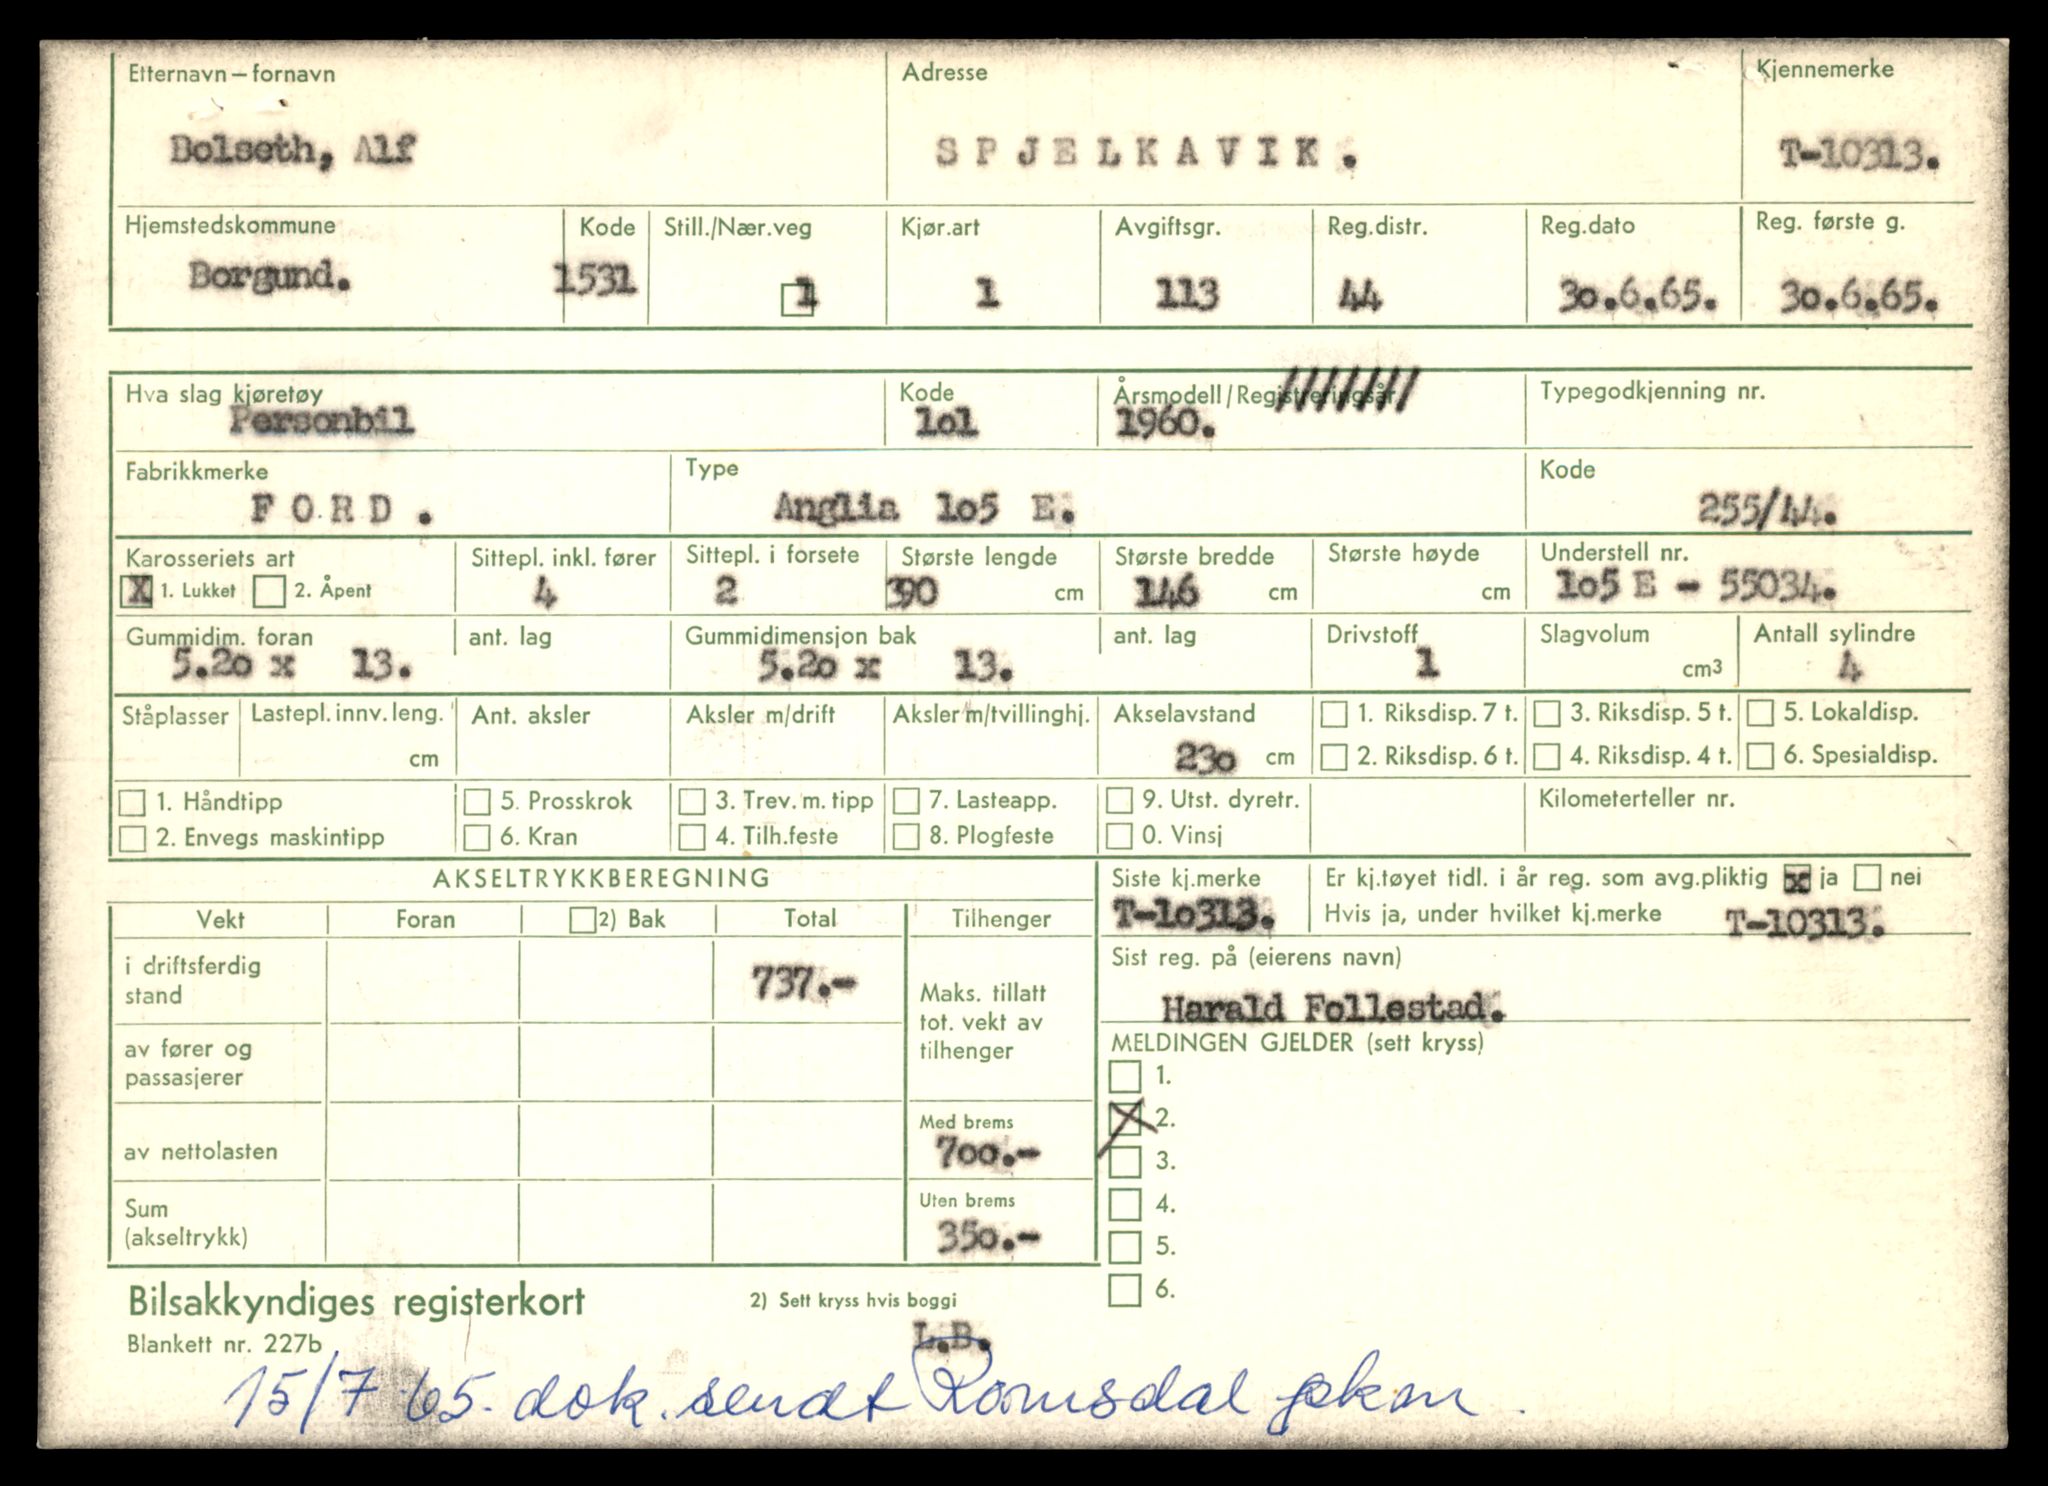 Etternavn – fornavn Adresse Kjennemerke
Bolseth, Alf SPJELKAVIK. T-10313.
Hjemstedskommune Kode Still./Nær.veg Kjør.art Avgiftsgr. Reg.distr. Reg.dato Reg. første g.
Borgund. 1531 1 1 113 44 30.6.65. 30.6.65.
Hva slag kjøretøy Kode Årsmodell/Registreringsår Typegodkjenning nr.
Personbil 1o1 1960.
Fabrikkmerke Type Kode
FORD. Anglia 1o5 E. 255/44.
Karosseriets art Sittepl. inkl. fører Sittepl. i forsete Største lengde Største bredde Største høyde Understell nr.
X 1. Lukket 2. Åpent 4 2 390 cm 146 cm cm 1o5 E - 55034.
Gummidim. foran ant. lag Gummidimensjon bak ant. lag Drivstoff Slagvolum Antall sylindre
5.2o x 13. 5.2o x 13. 1 cm3 4
Ståplasser Lastepl. innv. leng. Ant. aksler Aksler m/drift Aksler m/tvillinghj. Akselavstand 1. Riksdisp. 7 t. 3. Riksdisp. 5 t. 5. Lokaldisp.
cm 23o cm 2. Riksdisp. 6 t. 4. Riksdisp. 4 t. 6. Spesialdisp.
1. Håndtipp 5. Prosskrok 3. Trev. m. tipp 7. Lasteapp. 9. Utst. dyretr. Kilometerteller nr.
2. Envegs maskintipp 6. Kran 4. Tilh.feste 8. Plogfeste 0. Vinsj
AKSELTRYKKBEREGNING Siste kj.merke Er kj.tøyet tidl. i år reg. som avg.pliktig x ja nei
Vekt Foran 2) Bak Total Tilhenger T-10313. Hvis ja, under hvilket kj.merke T-10313.
i driftsferdig stand 737.- Sist reg. på (eierens navn)
Maks. tillatt tot. vekt av tilhenger Harald Follestad.
av fører og passasjerer MELDINGEN GJELDER (sett kryss)
1.
Med brems X 2.
av nettolasten 700.- 3.
Sum (akseltrykk) Uten brems 4.
350.- 5.
6.
Bilsakkyndiges registerkort 2) Sett kryss hvis boggi
Blankett nr. 227b L.B.
15/7 65. dok. sendt Romsdal